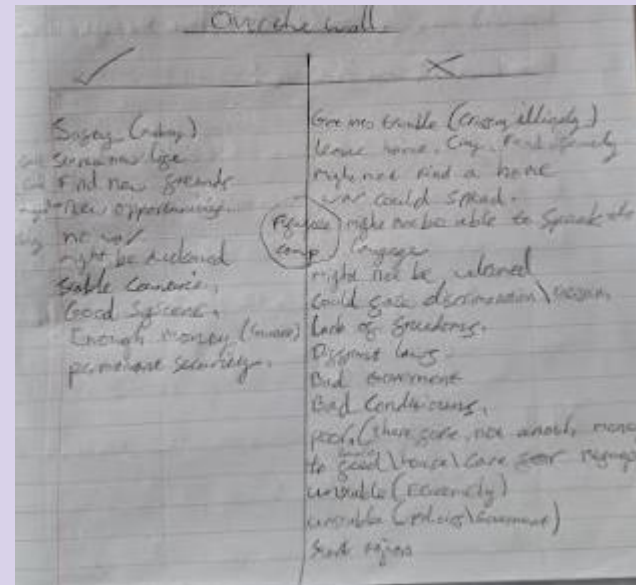 Over the wall
Safety
Start a new life
Find new friends
new opportunities
no war
might be welcomed
Stable
Good System.
Enough money
permanent security.
Get into trouble (Crossing illigaly)
leave home, City, Friends, family
might not find a home
war could spread.
Refugee camp
might not be able to Speak the
langage
might not be welcomed
Could face discrimination \
Lack of freedoms.
Different laws
Bad Goverment
Bad Conditions.
poor. (there fore, not enough money
to \ house \ care for
unstable
unstable (policies \ Goverment)